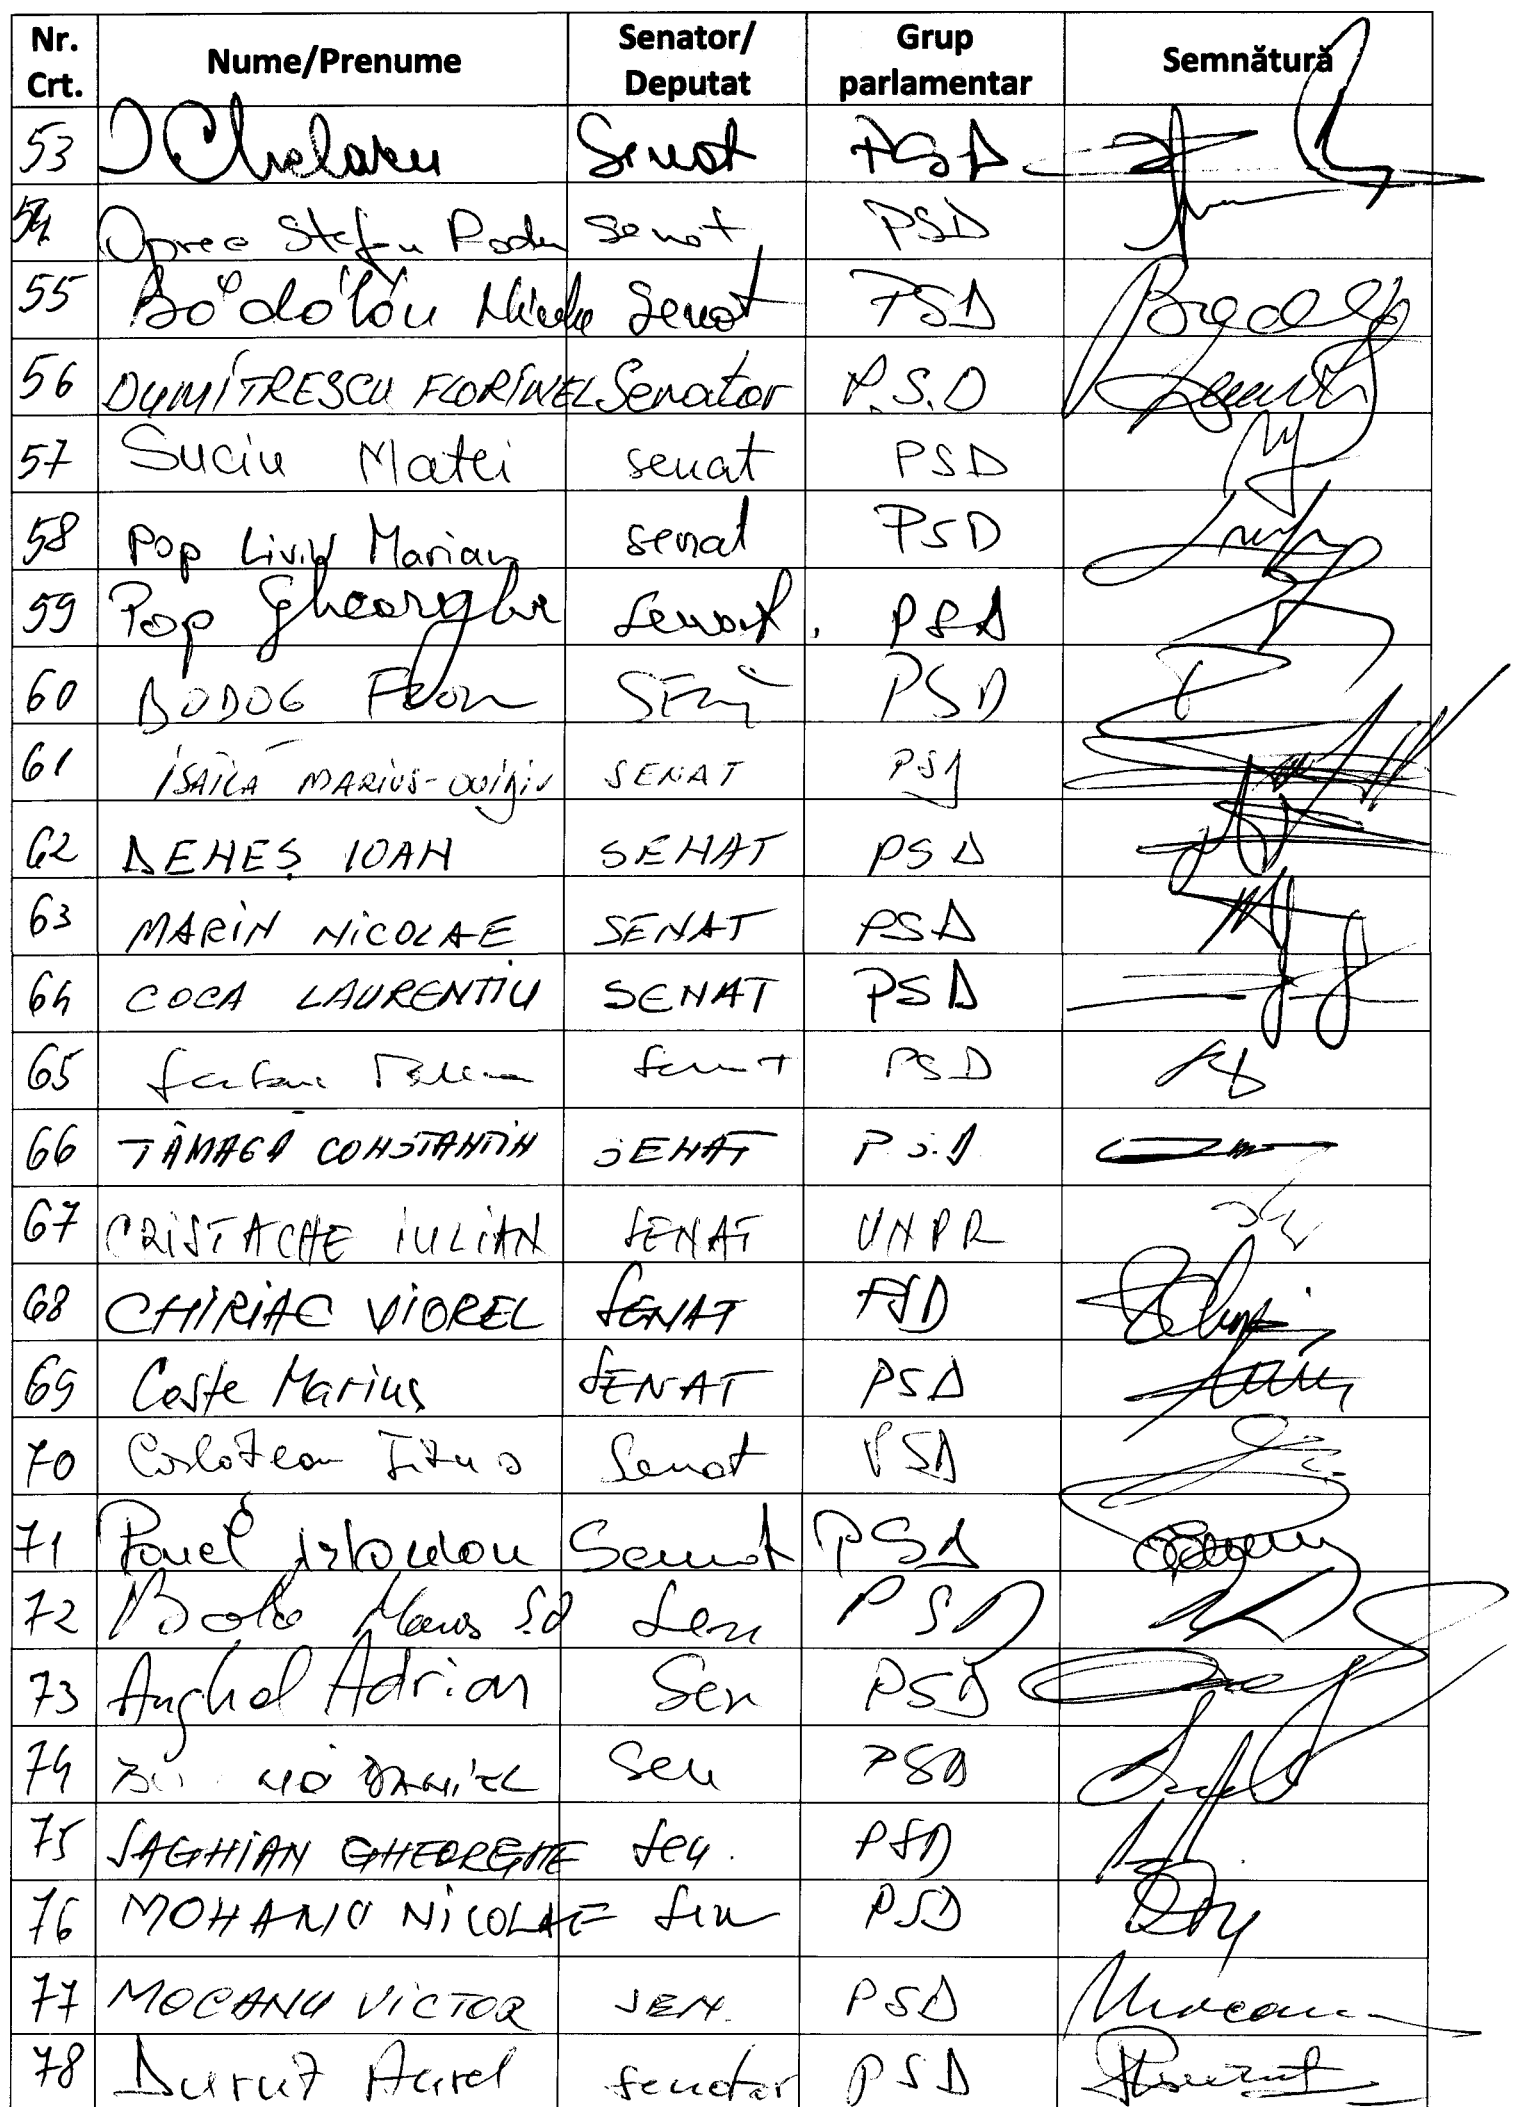 Nr. Crt. Nume/Prenume Senator/ Deputat Grup parlamentar Semnătură
53 I Chelaru Senat PSD
54 Oprea Stefan Radu Senat PSD
55 Bădălău Nicolae Senat PSD
56 DUMITRESCU FLORINEL Senator P.S.D
57 Suciu Matei senat PSD
58 Pop Liviu Marian senat PSD
59 Pop Gheorghe Senat. PSD
60 BODOG Florian SEN PSD
61 ISAILĂ MARIUS-OVIDIU SENAT PSD
62 DENEȘ IOAN SENAT PSD
63 MARIN NICOLAE SENAT PSD
64 COCA LAURENTIU SENAT PSD
65 Senat PSD
66 TĂMAGĂ CONSTANTIN SENAT P.S.D
67 CRISTACHE IULIAN SENAT UNPR
68 CHIRIAC VIOREL SENAT PSD
69 Coste Marius SENAT PSD
70 Corlățean Titus Senat PSD
71 Senat PSD
72 Sen PSD
73 Anghel Adrian Sen PSD
74 DANIEL Sen PSD
75 SAGHIAN GHEORGHE Sen. PSD
76 MOHANU NICOLAE Sen PSD
77 MOCANU VICTOR SEN. PSD
78 Duruț Aurel senator PSD